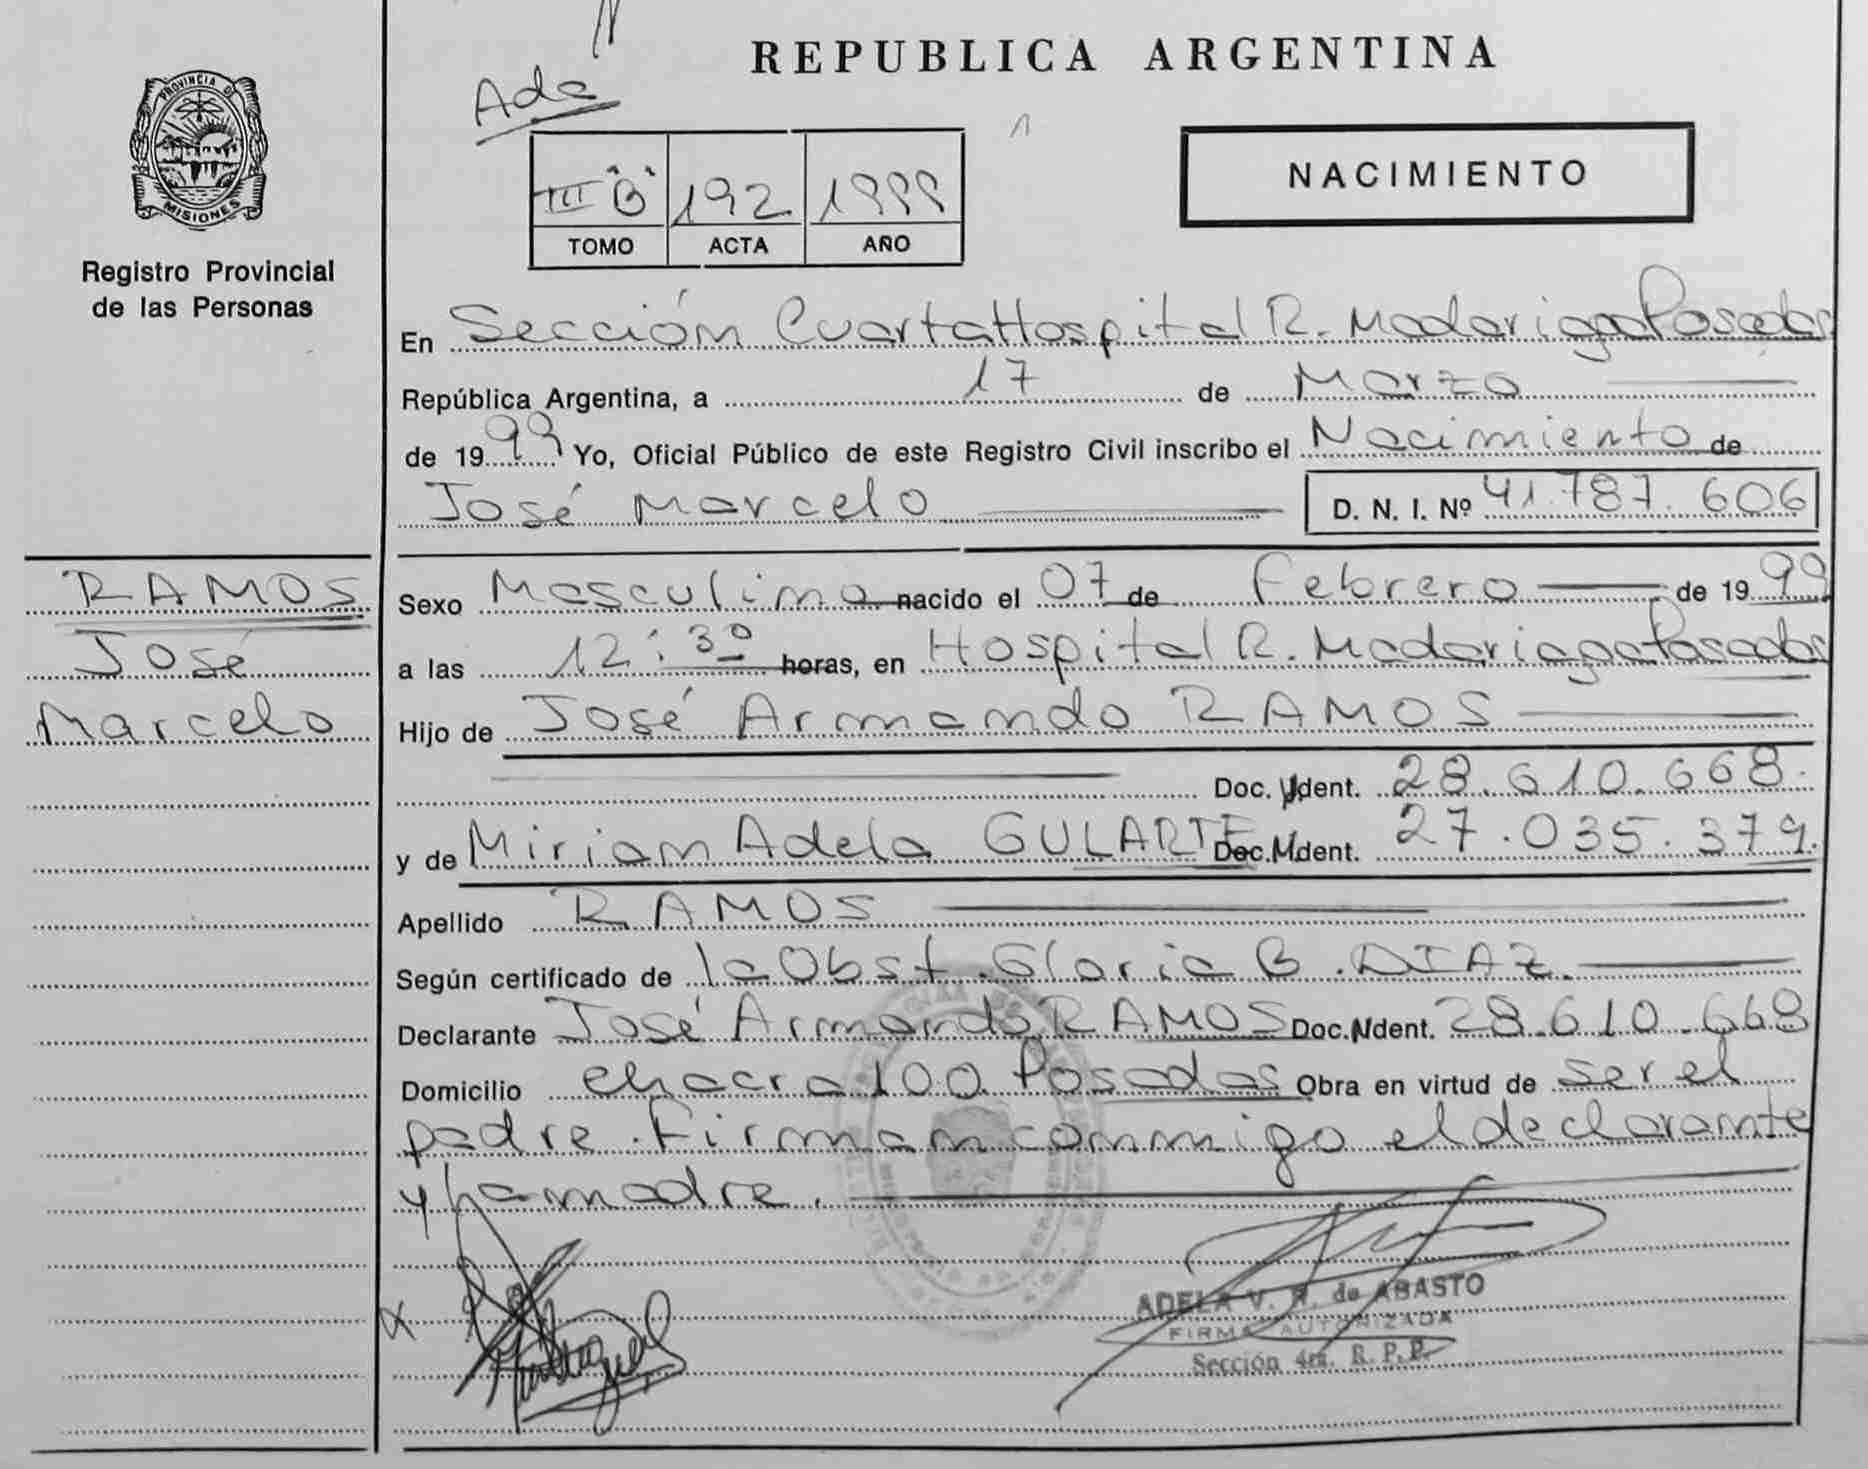 REPUBLICA ARGENTINA
Ada
PROVINCIA DE
MISIONES
Registro Provincial
de las Personas
III "B" 192 1999
TOMO ACTA AÑO
NACIMIENTO
En Sección Cuarta Hospital R. Madariaga Posadas
República Argentina, a 17 de Marzo
de 1999 Yo, Oficial Público de este Registro Civil inscribo el Nacimiento de
José Marcelo D. N. I. Nº 41.787.606
RAMOS
José
Marcelo
Sexo Masculino nacido el 07 de Febrero de 1999
a las 12:30 horas, en Hospital R. Madariaga Posadas
Hijo de José Armando RAMOS
Doc. Ident. 28.610.668.
y de Miriam Adela GULARTE Doc. Ident. 27.035.379.
Apellido RAMOS
Según certificado de la Obst. Gloria B. DIAZ.
Declarante José Armando RAMOS Doc. Ident. 28.610.668
Domicilio chacra 100 Posadas Obra en virtud de ser el
padre. Firman conmigo el declarante
y la madre.
X
ADELA V. R. de ABASTO
FIRMA AUTORIZADA
Sección 4ta. R. P. P.